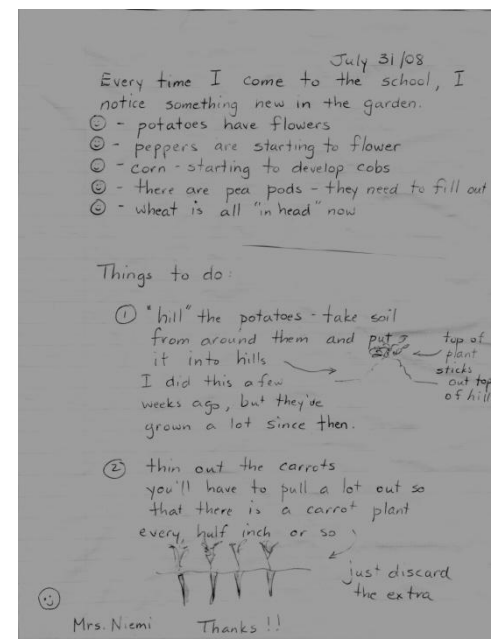 July 31/08
Every time I come to the school, I
notice something new in the garden.
- potatoes have flowers
- peppers are starting to flower
- corn - starting to develop cobs
- there are pea pods - they need to fill out
- wheat is all "in head" now
Things to do:
① "hill" the potatoes - take soil
from around them and put
it into hills
I did this a few
weeks ago, but they've
grown a lot since then.
top of
plant
sticks
out top
of hill
② thin out the carrots
you'll have to pull a lot out so
that there is a carrot plant
every, half inch or so
just discard
the extra
Mrs. Niemi Thanks!!